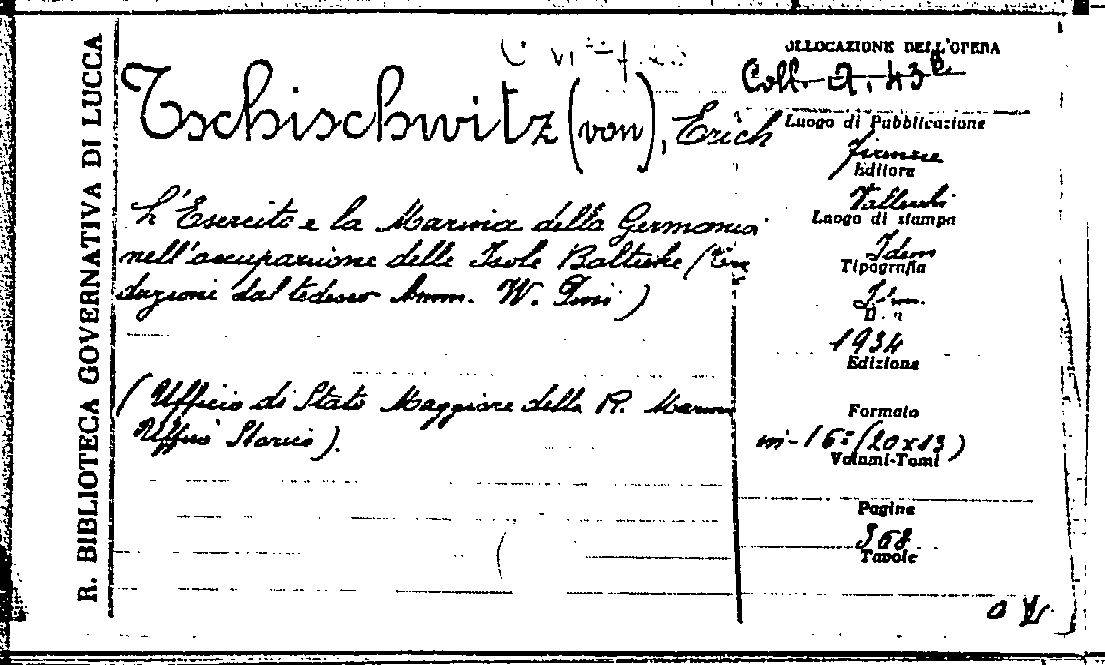 R. BIBLIOTECA GOVERNATIVA DI LUCCA
Tschischwitz (von), Erich
L'Esercito e la Marina della Germania
nell'occupazione delle Isole Baltiche (
duzione dal tedesco Amm. W.
(Ufficio di Stato Maggiore della R. Marina
Ufficio Storico).
OLLOCAZIONE DELL'OPERA
Coll. 43
Luogo di Pubblicazione
Firenze
Editore
Vallecchi
Luogo di stampa
Idem
Tipografia
Idem
1934
Edizione
Formato
in-16° (20x13)
Volumi-Tomi
Pagine
368
Tavole